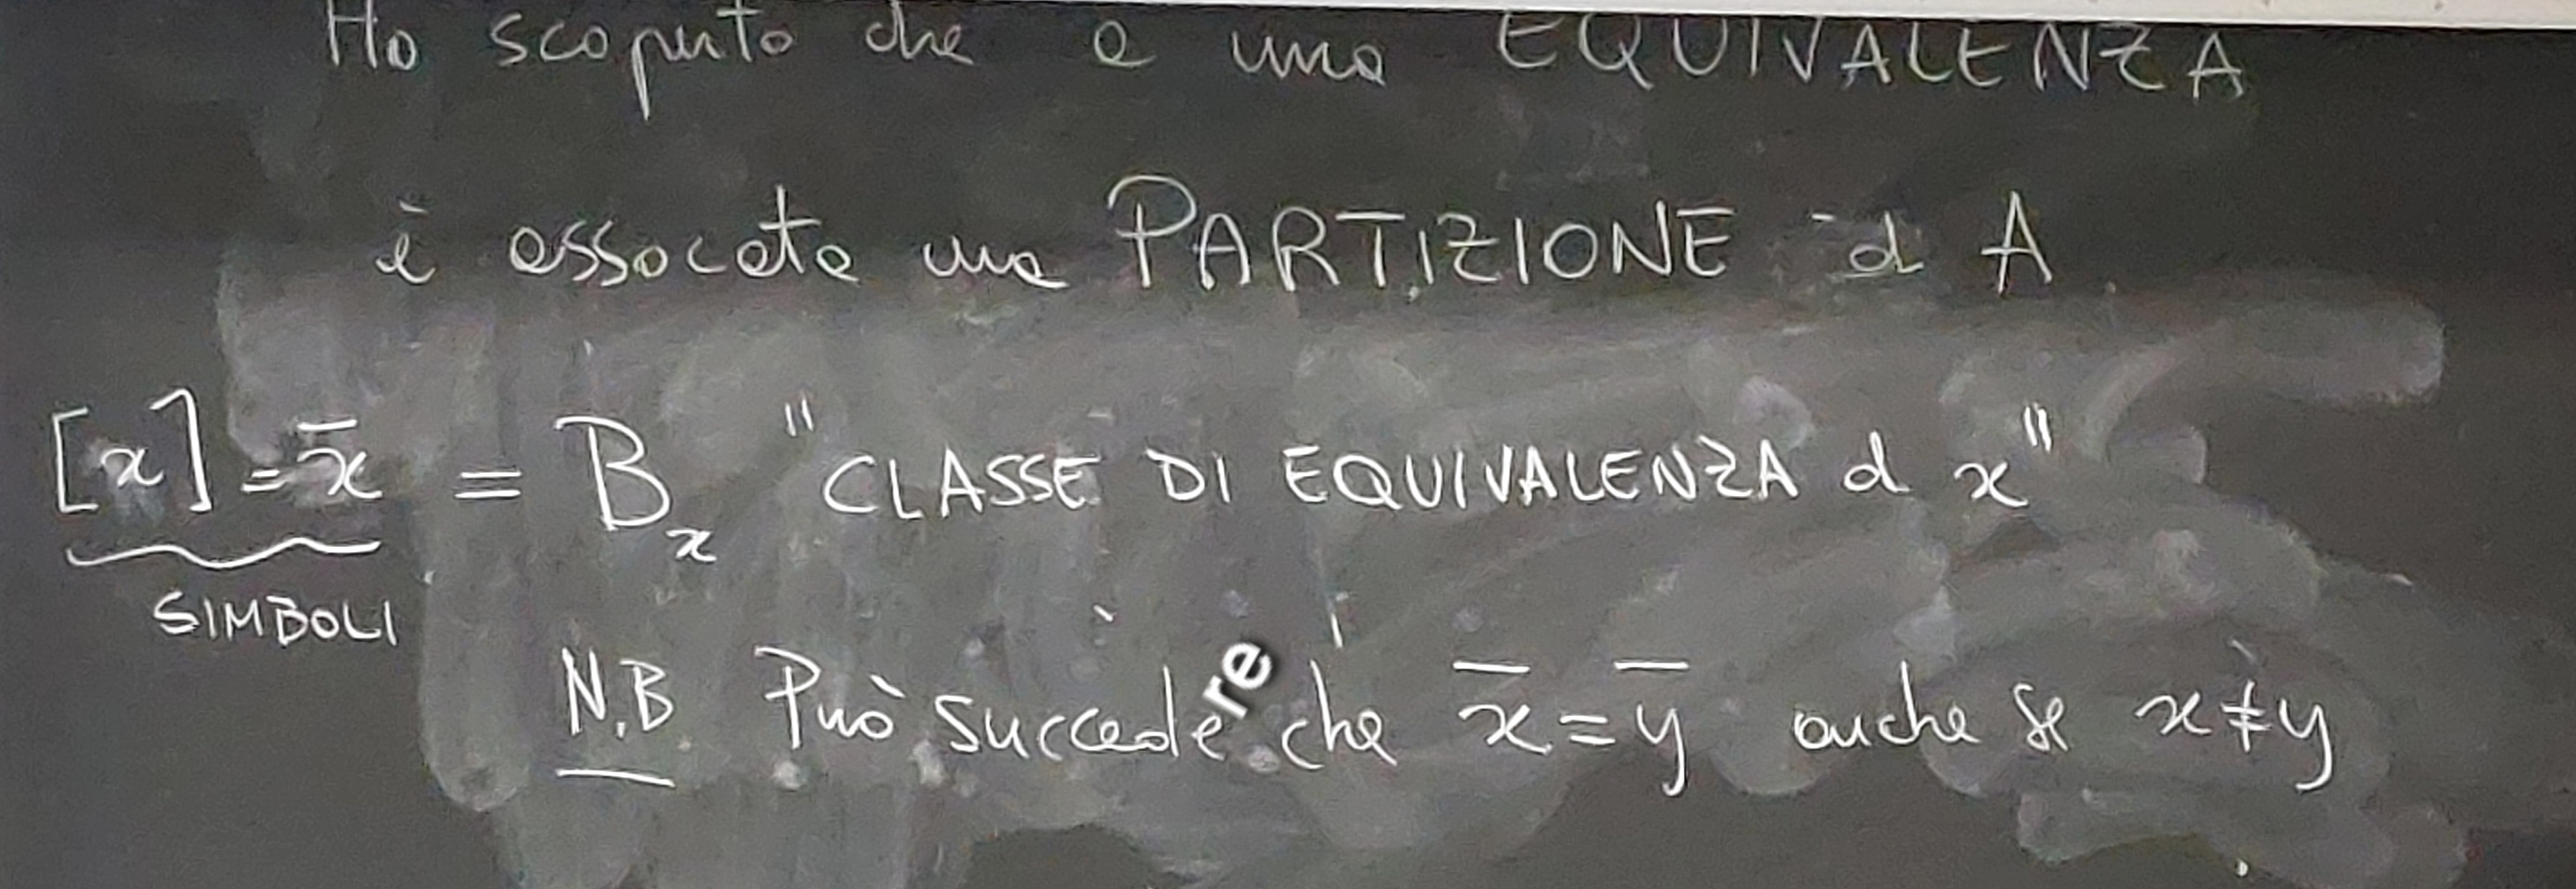 Ho scoperto che a una EQUIVALENZA
è associata una PARTIZIONE di A
[x] = x̄ = Bₓ "CLASSE DI EQUIVALENZA di x"
SIMBOLI
N.B. Può succedere che x̄ = ȳ anche se x ≠ y